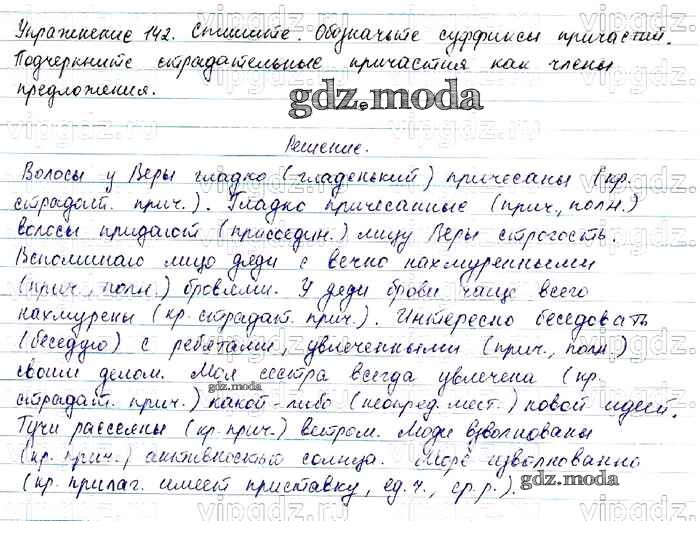 Упражнение 142. Спишите. Обозначьте суффиксы причастий.
Подчеркните страдательные причастия как члены
предложения.
gdz.moda
Решение.
Волосы у Веры гладко (гладенький) причесаны (кр.
страдат. прич.). Гладко причесанные (прич., полн.)
волосы придают (присоедин.) лицу Веры строгость.
Вспоминаю лицо деди с вечно нахмуренными
(прич., полн.) бровями. У деди брови чаще всего
нахмурены (кр. страдат. прич.). Интересно беседовать
(беседую) с ребятами, увлеченными (прич., полн.)
своим делом. Моя сестра всегда увлечена (кр.
gdz.moda
страдат. прич.) какой-либо (неопред. мест.) новой идеей.
Тучи рассеяны (кр. прич.) ветром. Моди взволнованы
(кр. прич.) активностью солнца. Море взволнованно
(кр. прилаг. имеет приставку, ед. ч., ср. р.).
gdz.moda